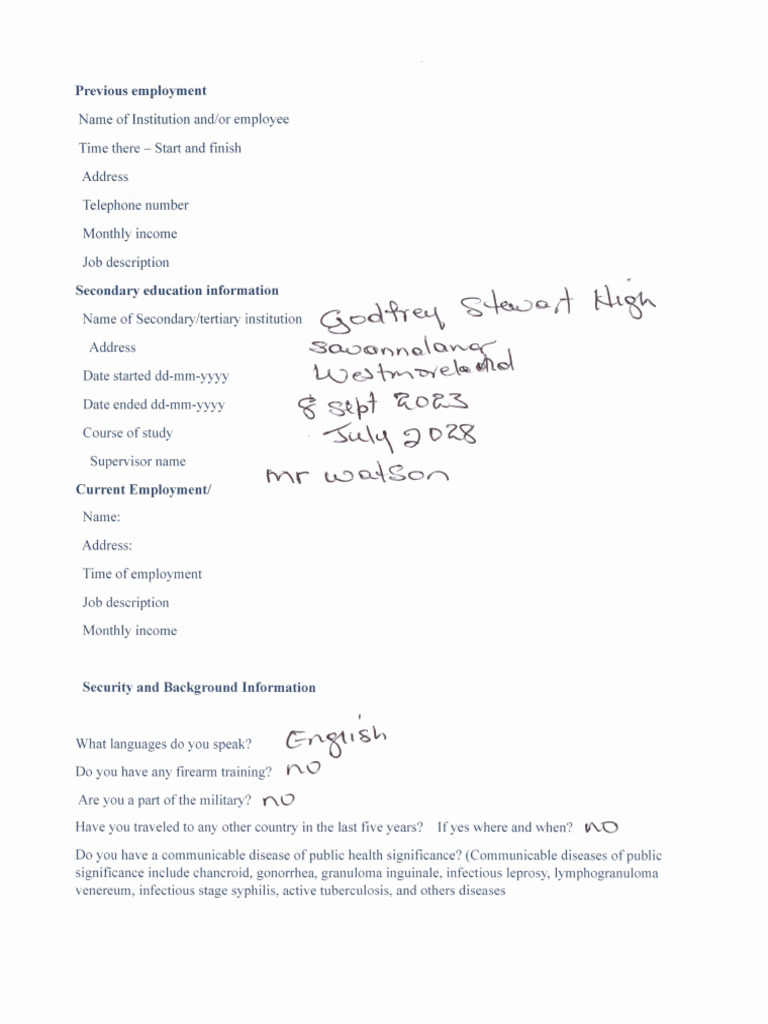 Previous employment
Name of Institution and/or employee
Time there – Start and finish
Address
Telephone number
Monthly income
Job description
Secondary education information
Name of Secondary/tertiary institution Godfrey Stewart High
Address Savannalanar
Date started dd-mm-yyyy Westmoreland
Date ended dd-mm-yyyy 8 Sept 2023
Course of study July 2028
Supervisor name mr watson
Current Employment/
Name:
Address:
Time of employment
Job description
Monthly income
Security and Background Information
What languages do you speak? English
Do you have any firearm training? no
Are you a part of the military? no
Have you traveled to any other country in the last five years? If yes where and when? no
Do you have a communicable disease of public health significance? (Communicable diseases of public
significance include chancroid, gonorrhea, granuloma inguinale, infectious leprosy, lymphogranuloma
venereum, infectious stage syphilis, active tuberculosis, and others diseases